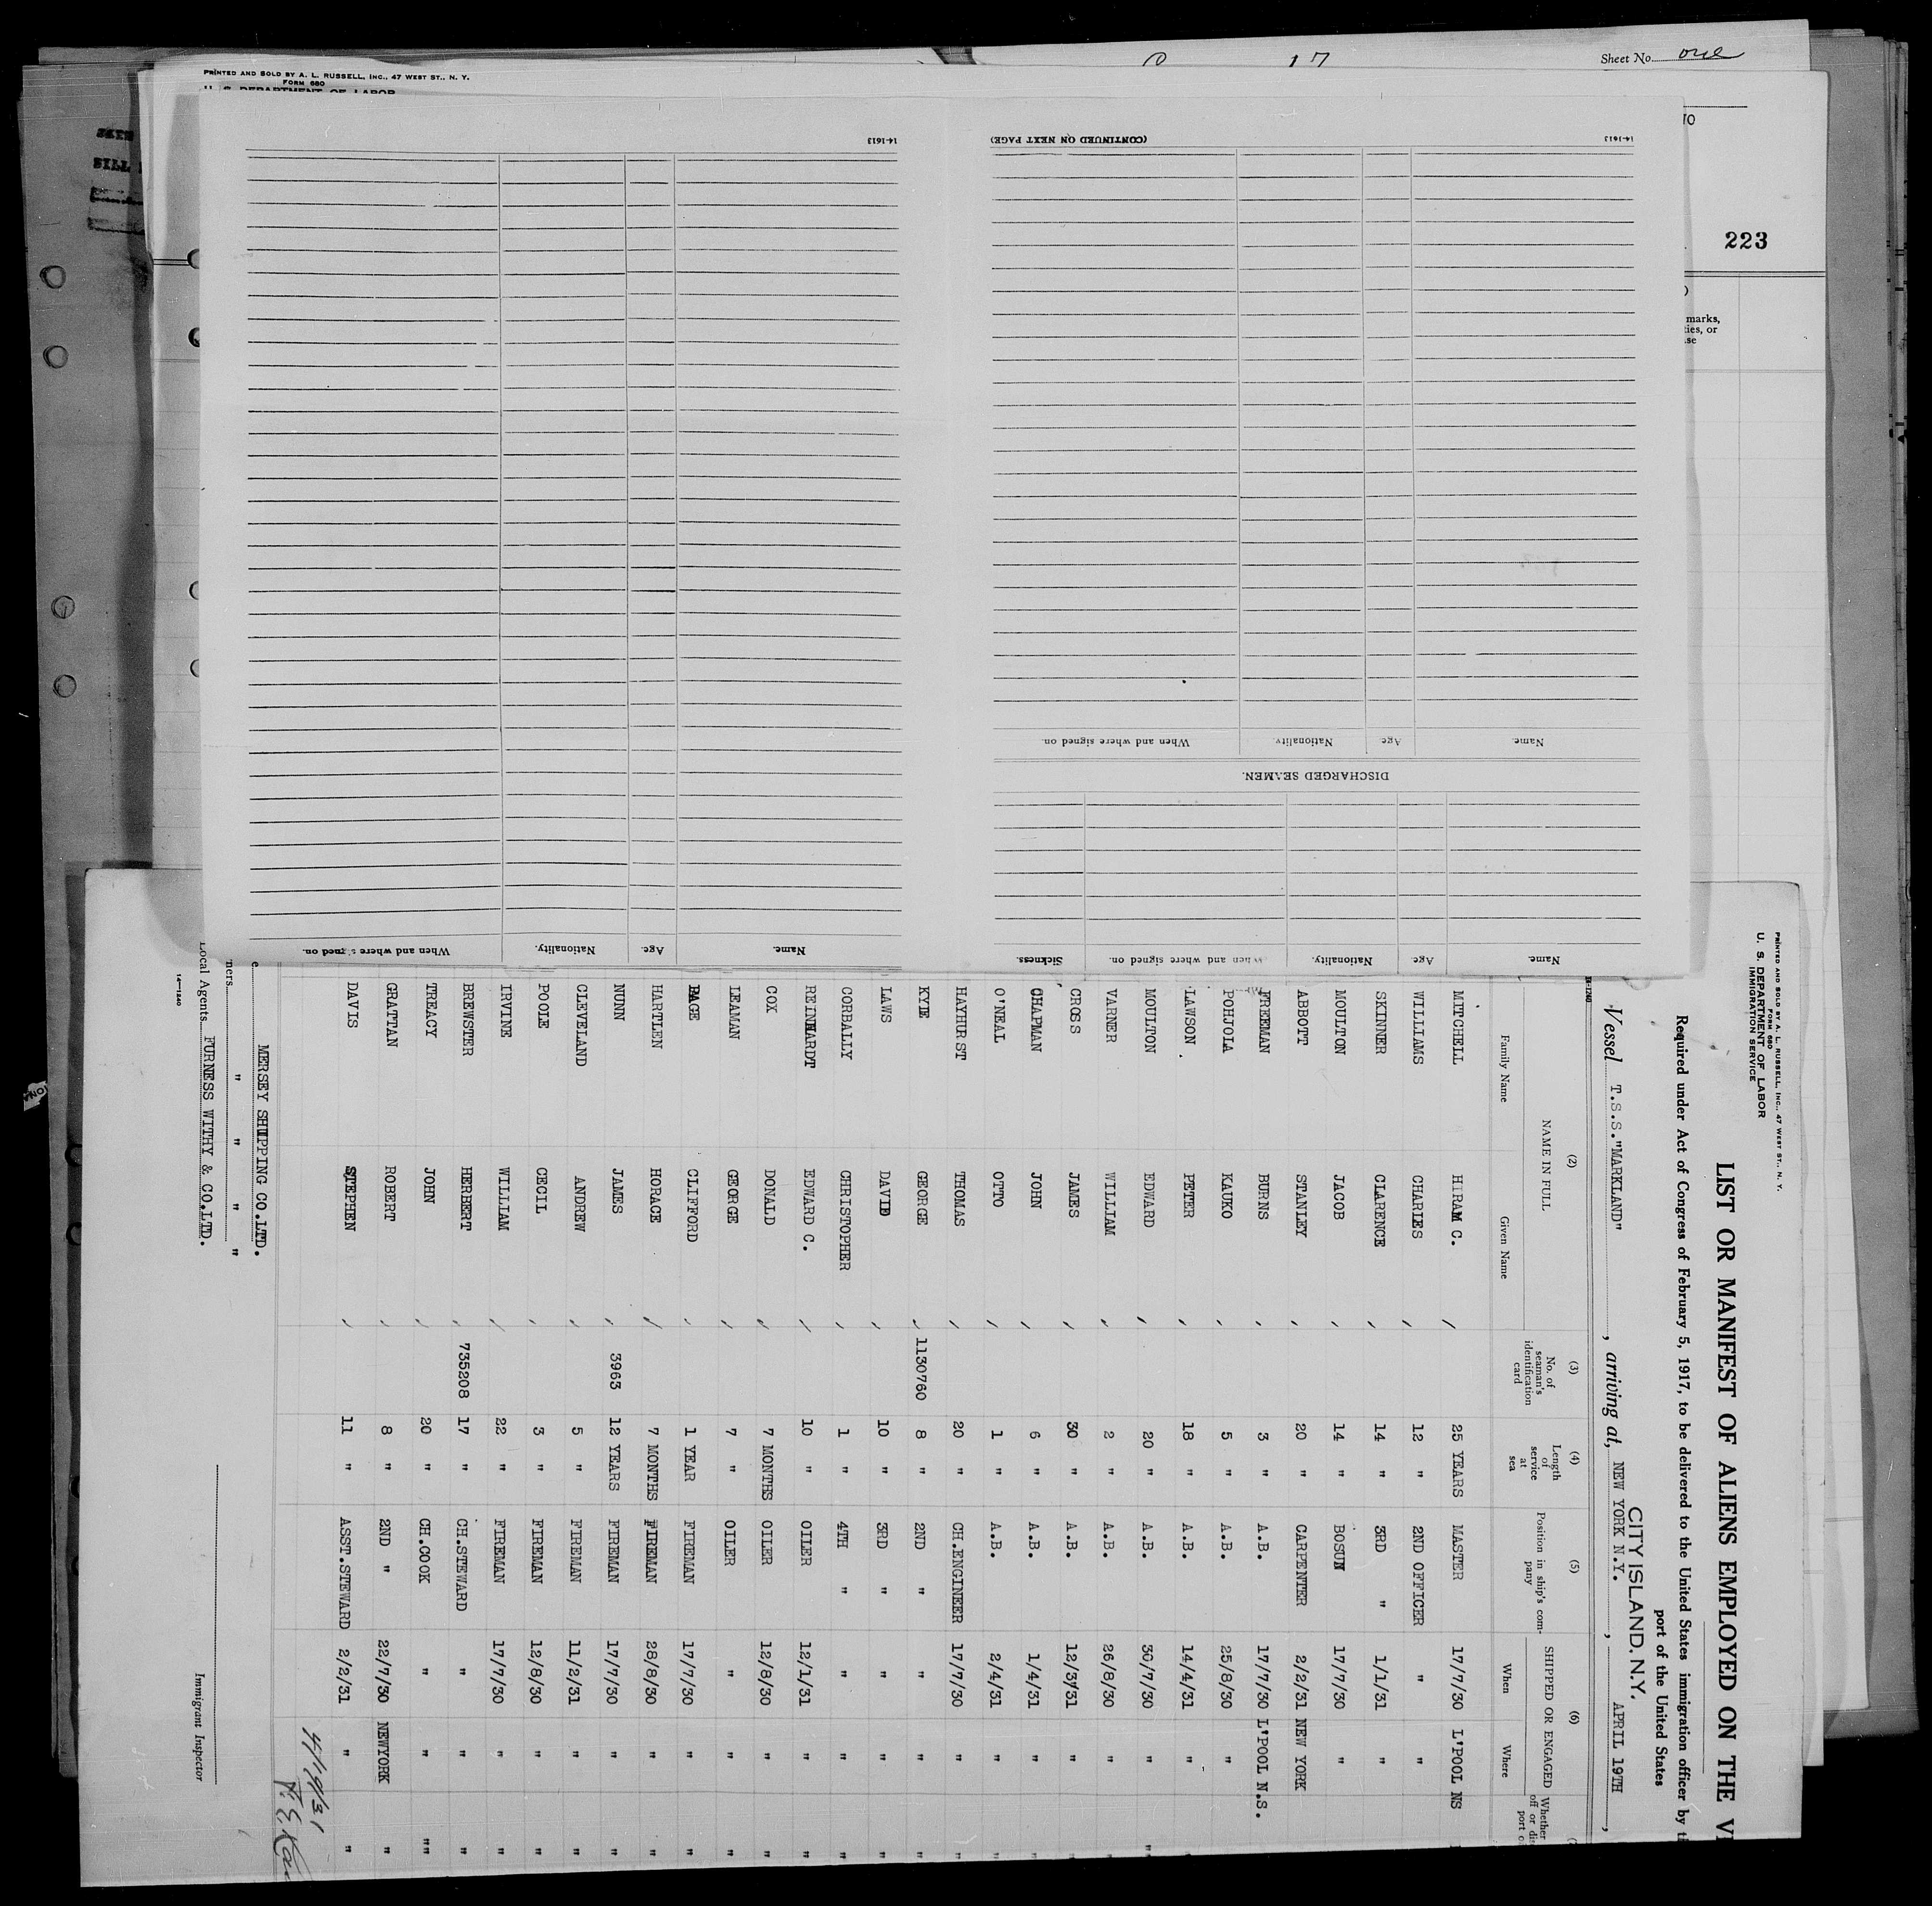 PRINTED AND SOLD BY A. L. RUSSELL, INC., 47 WEST ST., N. Y.
FORM 680
U. S. DEPARTMENT OF LABOR
Sheet No. one
223
marks,
ties, or
se
14-1613
(CONTINUED ON NEXT PAGE)
14-1613
Name. Age. Nationality. When and where signed on.
DISCHARGED SEAMEN.
Name. Age. Nationality. When and where signed on. Sickness.
Name. Age. Nationality. When and where signed on.
PRINTED AND SOLD BY A. L. RUSSELL, INC., 47 WEST ST., N. Y.
FORM 680
U. S. DEPARTMENT OF LABOR
IMMIGRATION SERVICE
LIST OR MANIFEST OF ALIENS EMPLOYED ON THE VE
Required under Act of Congress of February 5, 1917, to be delivered to the United States immigration officer by th
port of the United States
CITY ISLAND. N.Y.
Vessel T.S.S."MARKLAND", arriving at, NEW YORK N.Y., APRIL 19TH,
(2) (3) (4) (5) (6)
NAME IN FULL No. of seaman's identification card Length of service at sea Position in ship's company SHIPPED OR ENGAGED Whether
Family Name Given Name When Where
MITCHELL HIRAM C. 25 YEARS MASTER 17/7/30 L'POOL NS
WILLIAMS CHARLES 12 " 2ND OFFICER " "
SKINNER CLARENCE 14 " 3RD " 1/1/31 "
MOULTON JACOB 14 " BOSUN 17/7/30 "
ABBOTT STANLEY 20 " CARPENTER 2/2/31 NEW YORK
FREEMAN BURNS 3 " A.B. 17/7/30 L'POOL N.S.
POHJOLA KAUKO 5 " A.B. 25/8/30 "
LAWSON PETER 18 " A.B. 14/4/31 "
MOULTON EDWARD 20 " A.B. 30/7/30 " "
VARNER WILLIAM 2 " A.B. 26/8/30 " "
CROSS JAMES 30 " A.B. 12/3/31 " "
CHAPMAN JOHN 6 " A.B. 1/4/31 " "
O'NEAL OTTO 1 " A.B. 2/4/31 " "
HAYHURST THOMAS 20 " CH.ENGINEER 17/7/30 " "
KYTE GEORGE 1130760 8 " 2ND " " " "
LAWS DAVID 10 " 3RD " " " "
CORBALLY CHRISTOPHER 1 " 4TH " " " "
REINHARDT EDWARD C. 10 " OILER 12/1/31 " "
COX DONALD 7 MONTHS OILER 12/8/30 " "
LEAMAN GEORGE 7 " OILER " " "
PAGE CLIFFORD 1 YEAR FIREMAN 17/7/30 " "
HARTLEN HORACE 7 MONTHS FIREMAN 28/8/30 " "
NUNN JAMES 3963 12 YEARS FIREMAN 17/7/30 " "
CLEVELAND ANDREW 5 " FIREMAN 11/2/31 " "
POOLE CECIL 3 " FIREMAN 12/8/30 " "
IRVINE WILLIAM 22 " FIREMAN 17/7/30 " "
BREWSTER HERBERT 735208 17 " CH.STEWARD " " "
TREACY JOHN 20 " CH.COOK " " ""
GRATTAN ROBERT 8 " 2ND " 22/7/30 NEWYORK "
DAVIS STEPHEN 11 " ASST.STEWARD 2/2/31 " "
4/19/31
MERSEY SHIPPING CO.LTD.
ners " " " "
Local Agents FURNESS WITHY & CO.LTD.
Immigrant Inspector
14-1240